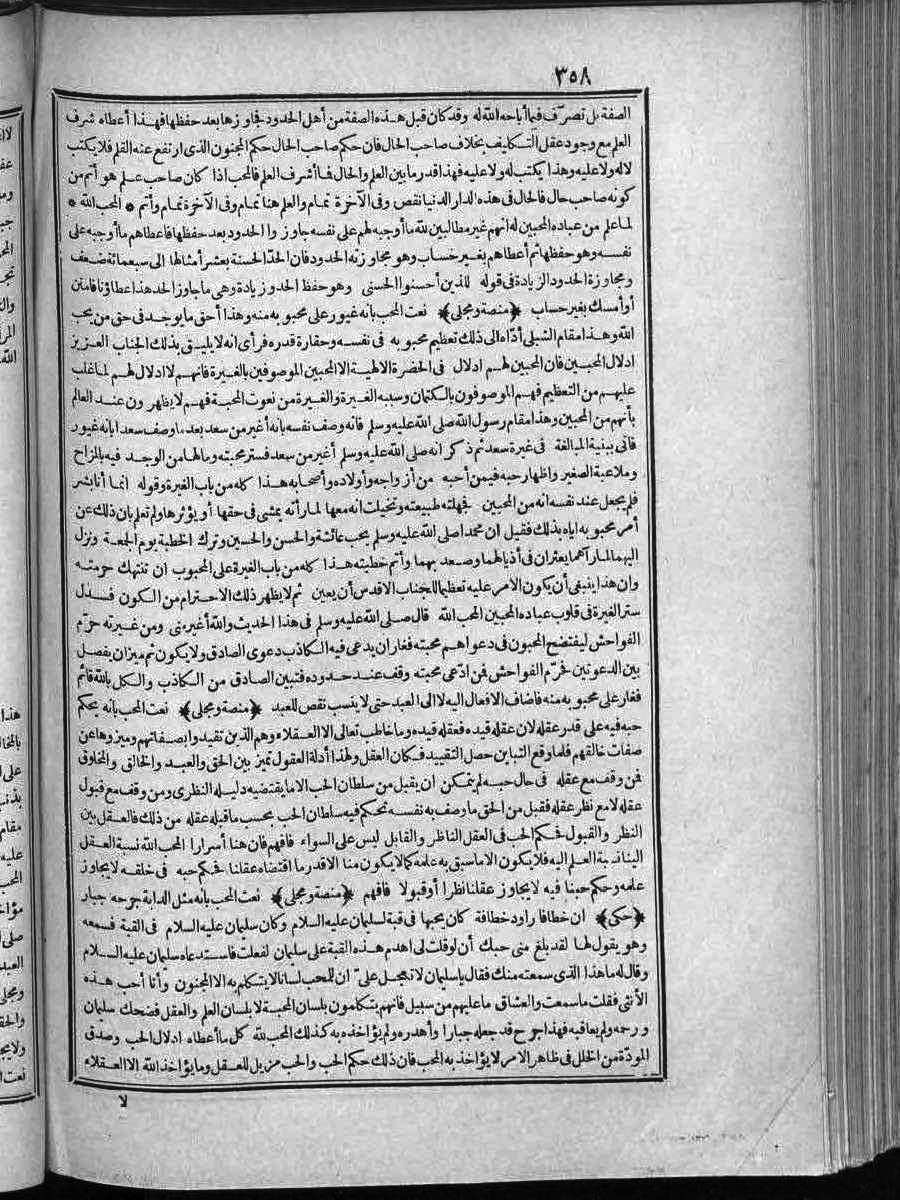 ٣٥٨
الصفة بل تصرّف فيما أباحه الله له وقد كان قبل هذه الصفة من أهل الحدود فجاوزها بعد حفظها فهذا أعطاه شرف
العلم مع وجود عقل التكليف بخلاف صاحب الحال فان حكم صاحب الحال حكم المجنون الذى ارتفع عنه القلم فلا يكتب
لاله ولا عليه وهذا يكتب له ولا عليه فهذا قدر ما بين العلم والحال فما أشرف العلم فالمحب اذا كان صاحب علم هو أتم من
كونه صاحب حال فالحال فى هذه الدار الدنيا نقص وفى الآخرة تمام والعلم هنا تمام وفى الآخرة تمام وأتم * المحب الله *
لما علم من عباده المحبين له انهم غير مطالبين لله ما أوجبه لهم على نفسه جاوزوا الحدود بعد حفظها فاعطاهم ما أوجبه على
نفسه وهو حفظها ثم أعطاهم بغير حساب وهو مجاوزته الحدود فان الحدّ الحسنة بعشر أمثالها الى سبعمائة ضعف
ومجاوزة الحدود الزيادة فى قوله للذين أحسنوا الحسنى وهو حفظ الحدوزيادة وهى ما جاوز الحد هذا عطاؤنا فامنن
أو أمسك بغير حساب ﴿منصة ومجلى﴾ نعت المحب بانه غيور على محبوبه منه وهذا أحق ما يوجد فى حق من يحب
الله وهذا مقام الشبلى أدّاه الى ذلك تعظيم محبوبه فى نفسه وحقارة قدره فرأى انه لا يليق بذلك الجناب العزيز
ادلال المحبين فان المحبين لهم ادلال فى الحضرة الالهية الا المحبين الموصوفين بالغيرة فانهم لا ادلال لهم لما غلب
عليهم من التعظيم فهم الموصوفون بالكتمان وسببه الغيرة والغيرة من نعوت المحبة فهم لا يظهرون عند العالم
بأنهم من المحبين وهذا مقام رسول الله صلى الله عليه وسلم فانه وصف نفسه بانه أغير من سعد بعد ما وصف سعدا بانه غيور
فاتى ببنية المبالغة فى غيرة سعد ثم ذكر انه صلى الله عليه وسلم أغير من سعد فستر محبته وما لها من الوجد فيه بالمزاح
وملاعبة الصغير واظهار حبه فيمن أحبه من أزواجه وأولاده وأصحابه هذا كله من باب الغيرة وقوله انما أنا بشر
فلم يجعل عند نفسه انه من المحبين فجهلته طبيعته وتخيلت انه معها لما رأته يمشى فى حقها أو يؤثرها ولم تعلم بان ذلك عن
أمر محبوبه اياه بذلك فقيل ان محمدا صلى الله عليه وسلم يحب عائشة والحسن والحسين وترك الخطبة يوم الجمعة ونزل
اليهما لما رآهما يعثران فى أذيالهما وصعد بهما وأتم خطبته هذا كله من باب الغيرة على المحبوب ان تنتهك حرمته
وان هذا ينبغى أن يكون الامر عليه تعظيما للجناب الاقدس أن يعين ثم لا يظهر ذلك الاحترام من الكون فسدل
ستر الغيرة فى قلوب عباده المحبين المحب الله قال صلى الله عليه وسلم فى هذا الحديث والله أغير منى ومن غيرته حرّم
الفواحش ليفتضح المحبون فى دعواهم محبته فغار ان يدعى فيه الكاذب دعوى الصادق ولا يكون ثم ميزان يفصل
بين الدعوتين فحرّم الفواحش فمن ادّعى محبته وقف عند حدوده فتبين الصادق من الكاذب والكل بالله قائم
فغار على محبوبه منه فاضاف الافعال اليه لا الى العبد حتى لا ينسب نقص للعبد ﴿منصة ومجلى﴾ نعت المحب بانه يحكم
حبه فيه على قدر عقله لان عقله قيده فعقله قيده وما خاطب تعالى الا العقلاء وهم الذين تقيدوا بصفاتهم وميزوها عن
صفات خالقهم فلما وقع التباين حصل التقييد فكان العقل ولهذا أدلة العقول تميز بين الحق والعبد والخالق والمخلوق
فمن وقف مع عقله فى حال حبه لم يتمكن ان يقبل من سلطان الحب الا ما يقتضيه دليله النظرى ومن وقف مع قبول
عقله لا مع نظر عقله فقبل من الحق ما وصف به نفسه تحكم فيه سلطان الحب بحسب ما قبله عقله من ذلك فالعقل بين
النظر والقبول فحكم الحب فى العقل الناظر والقابل ليس على السواء فافهم فان هنا أسرارا المحب الله نسبة العقل
الينا نسبة العلم اليه فلا يكون الا ما سبق به علمه كما لا يكون منا الا قدر ما اقتضاه عقلنا فحكم حبه فى خلقه لا يجاوز
علمه وحكم حبنا فيه لا يجاوز عقلنا نظرا أو قبولا فافهم ﴿منصة ومجلى﴾ نعت المحب بانه مثل الدابة جرحه جبار
﴿حكى﴾ ان خطافا راود خطافة كان يحبها فى قبة لسليمان عليه السلام وكان سليمان عليه السلام فى القبة فسمعه
وهو يقول لها لقد بلغ منى حبك أن لو قلت لى اهدم هذه القبة على سليمان لفعلت فاستدعاه سليمان عليه السلام
وقال له ما هذا الذى سمعته منك فقال يا سليمان لا تعجل علىّ ان للمحب لسانا لا يتكلم به الا المجنون وأنا أحب هذه
الأنثى فقلت ما سمعت والعشاق ما عليهم من سبيل فانهم يتكلمون بلسان المحبة لا بلسان العلم والعقل فضحك سليمان
ورحمه ولم يعاقبه فهذا جرح قد جعله جبارا وأهدره ولم يؤاخذه به كذلك المحب لله كل ما أعطاه ادلال الحب وصدق
المودّة من الخلل فى ظاهر الامر لا يؤاخذ به المحب فان ذلك حكم الحب والحب مزيل للعقل وما يؤاخذ الله الا العقلاء
لا